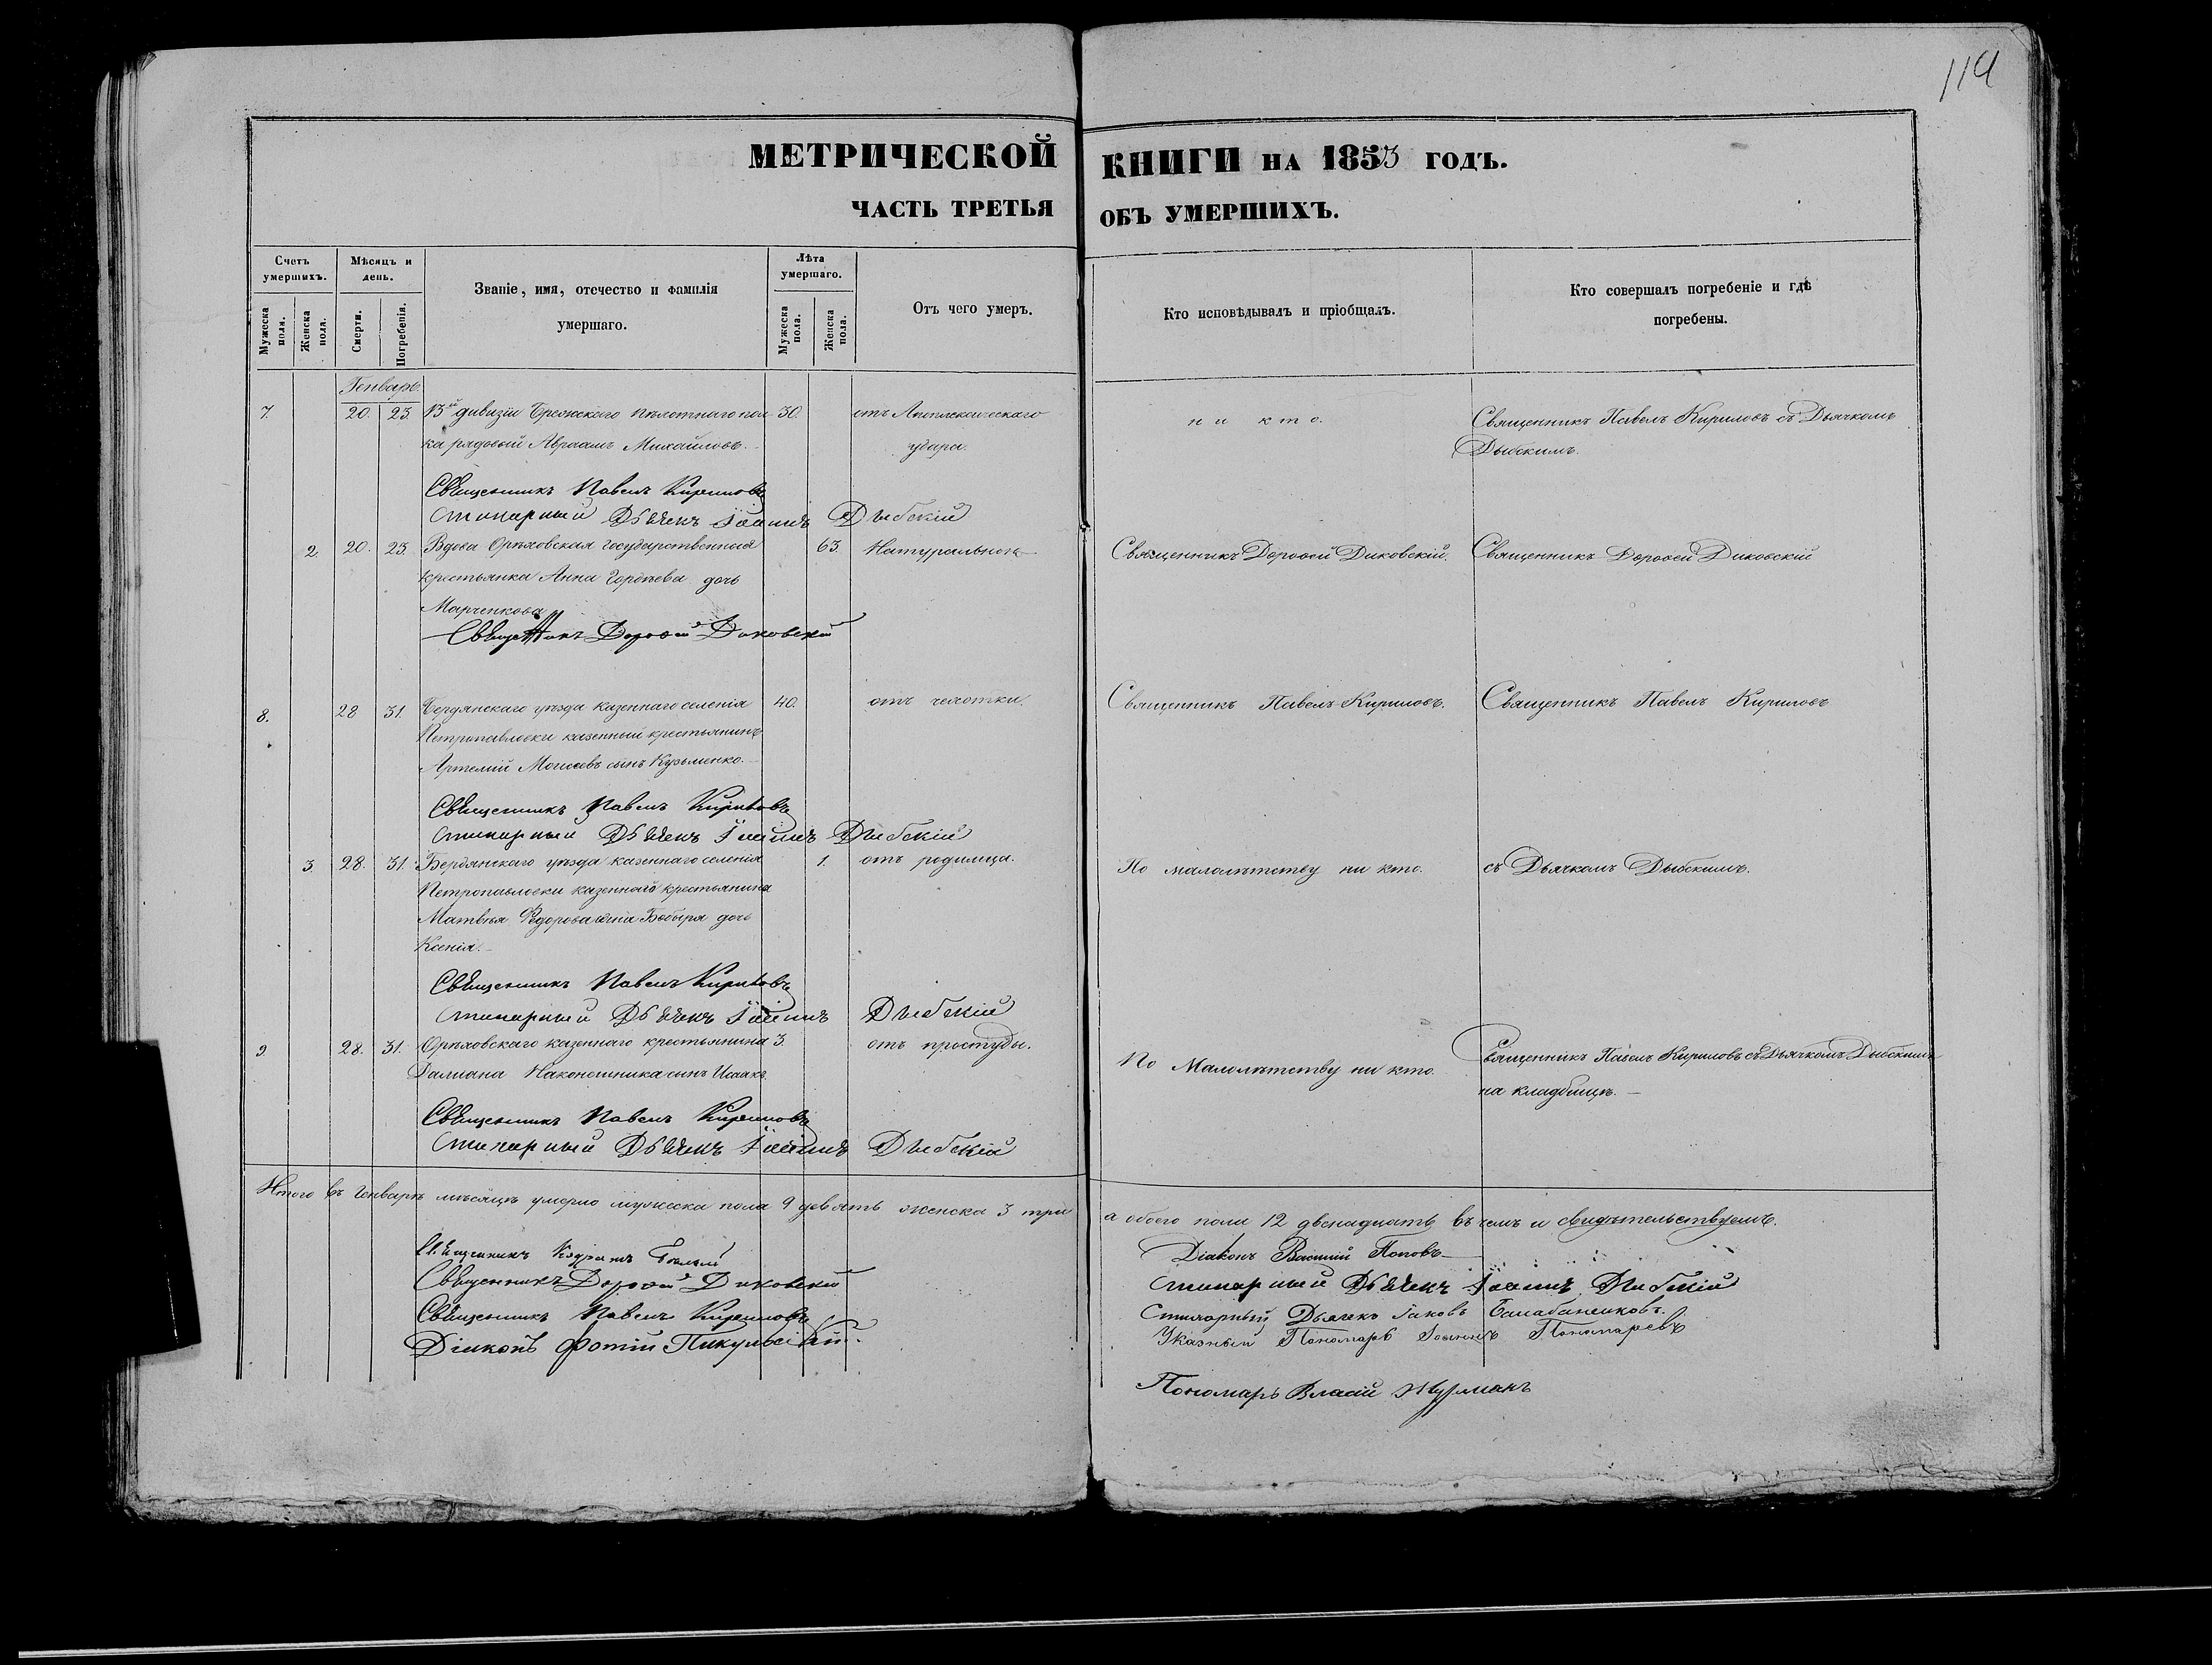 119
МЕТРИЧЕСКОЙ КНИГИ НА 1853 ГОДЪ.
ЧАСТЬ ТРЕТЬЯ ОБЪ УМЕРШИХЪ.
Счетъ умершихъ.
Мужеска пола.
Женска пола.
Мѣсяцъ и день.
Смерти.
Погребенія.
Званіе, имя, отечество и фамилія умершаго.
Лѣта умершаго.
Мужеска пола.
Женска пола.
Отъ чего умеръ.
Кто исповѣдывалъ и пріобщалъ.
Кто совершалъ погребеніе и гдѣ погребены.
Генварь.
7. 20. 23. 13й дивизіи Брестскаго пѣхотнаго пол 30. отъ Апоплексическаго ни кто. Священникъ Павелъ Кириловъ съ Дьячкомъ
ка рядовый Авраамъ Михайловъ. удара. Дыбскимъ.
Священникъ Павелъ Кириловъ
Стихарный Дьячекъ Іоаннъ Дыбскій
2. 20. 23. Вдова Орѣховская государственная 63. Натуральною Священникъ Дорофей Диковскій. Священникъ Дорофей Диковскій
крестьянка Анна Гордѣева дочь
Марченкова
Священникъ Дорофей Диковскій
8. 28 31. Бердянскаго уѣзда казеннаго селенія 40. отъ чехотки. Священникъ Павелъ Кириловъ. Священникъ Павелъ Кириловъ
Петропавловки казенный крестьянинъ
Артемій Моисеевъ сынъ Кузьменко.
Священникъ Павелъ Кириловъ
Стихарный Дьячекъ Іоаннъ Дыбскій
3. 28. 31. Бердянскаго уѣзда казеннаго селенія 1. отъ родимца. По малолѣтству ни кто. съ Дьячкомъ Дыбскимъ.
Петропавловки казеннаго крестьянина
Матвѣя Федорова сына Бобыря дочь
Ксенія.
Священникъ Павелъ Кириловъ
Стихарный Дьячекъ Іоаннъ Дыбскій
9. 28. 31. Орѣховскаго казеннаго крестьянина 3. отъ простуды. По Малолѣтству ни кто. Священникъ Павелъ Кириловъ съ Дьячкомъ Дыбскимъ
Даміана Наконешника сынъ Исаакъ. на кладбищѣ.
Священникъ Павелъ Кириловъ
Стихарный Дьячекъ Іоаннъ Дыбскій
Итого въ Генварѣ мѣсяцѣ умерло мужеска пола 9 девять женска 3 три а обоего пола 12 двенадцать въ чемъ и свидѣтельствуемъ.
Священникъ
Священникъ Дорофей Диковскій
Священникъ Павелъ Кириловъ
Діаконъ Фотій
Діаконъ Василій Поповъ
Стихарный Дьячекъ Іоаннъ Дыбскій
Стихарный Дьячекъ Іаковъ
Указный Пономарь Іоаннъ Пономаревъ
Пономарь Власій Журманъ